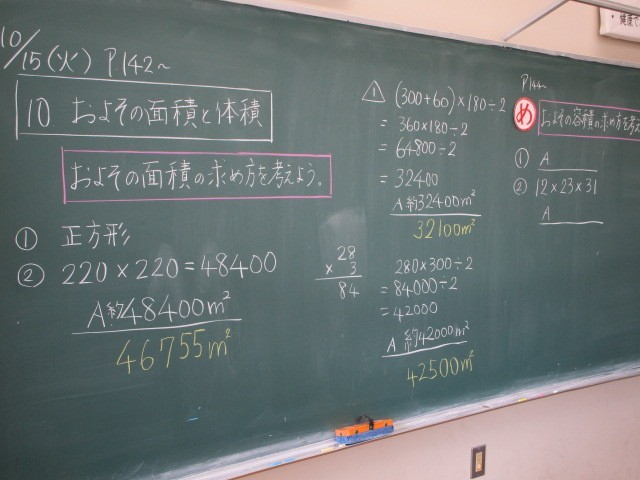 10/15(火) P142~
10 およその面積と体積
およその面積の求め方を考えよう。
① 正方形
② 220×220=48400
A 約48400m²
46755m²
28
×3
84
△1 (300+60)×180÷2
= 360×180÷2
= 64800÷2
= 32400
A 約32400m²
32100m²
280×300÷2
= 84000÷2
= 42000
A 約42000m²
42500m²
P144~
め およその容積の求め方を考え
① A
② 12×23×31
A